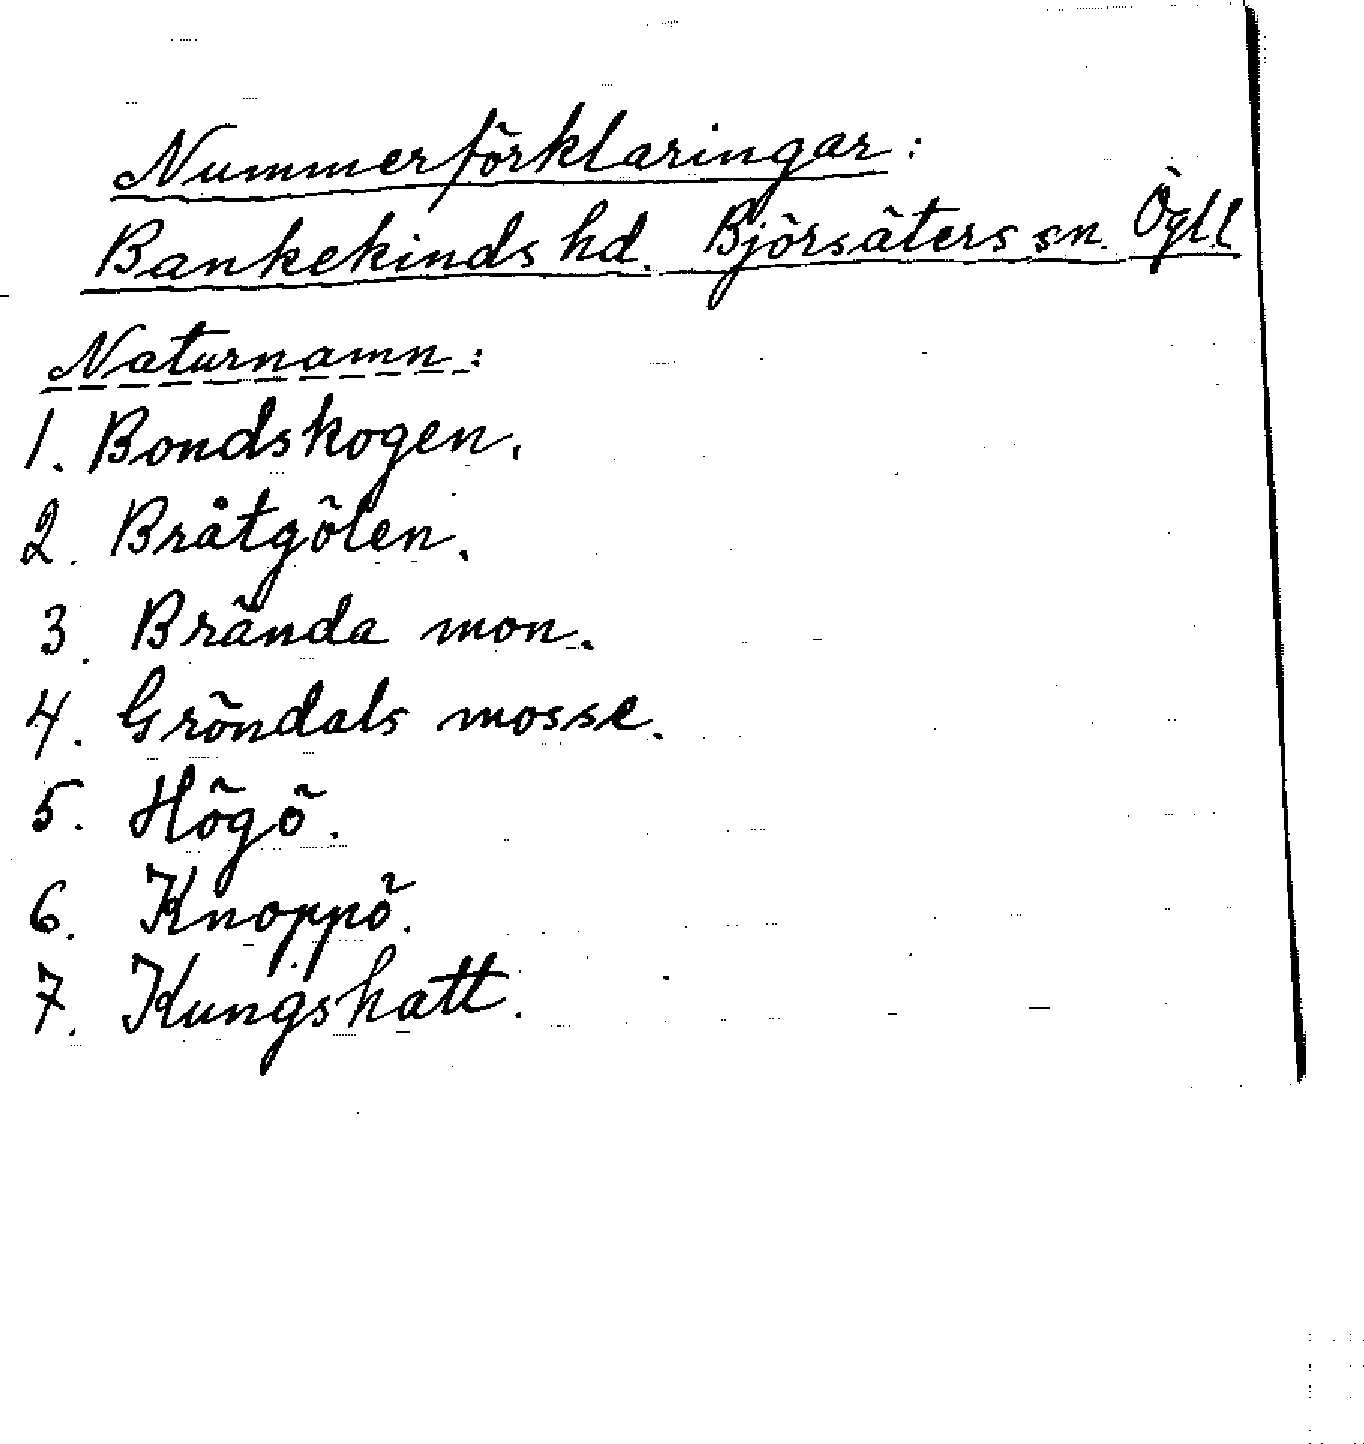 Nummerförklaringar:
Bankekinds hd. Björsäters sn. Ögtl
Naturnamn:
1. Bondskogen.
2. Bråtgölen.
3. Brända mon.
4. Gröndals mosse.
5. Högö.
6. Knoppö.
7. Kungshatt.